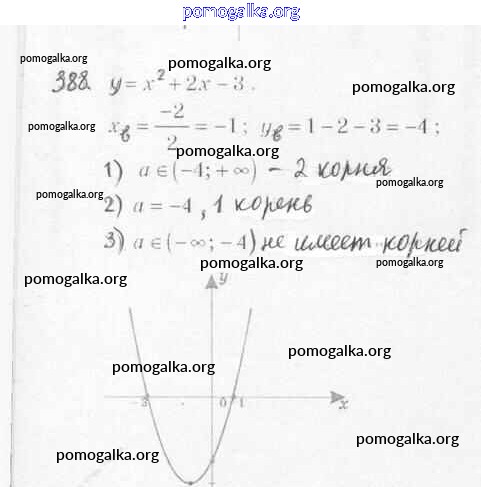 pomogalka.org
pomogalka.org pomogalka.org
388. y = x² + 2x − 3. pomogalka.org
pomogalka.org x_в = −2/2 = −1; y_в = 1 − 2 − 3 = −4;
pomogalka.org
1) a ∈ (−4; +∞) − 2 корня
pomogalka.org
pomogalka.org
2) a = −4, 1 корень
3) a ∈ (−∞; −4) не имеет корней
pomogalka.org pomogalka.org
pomogalka.org
y
pomogalka.org
pomogalka.org
−3 0 1 x
pomogalka.org
pomogalka.org